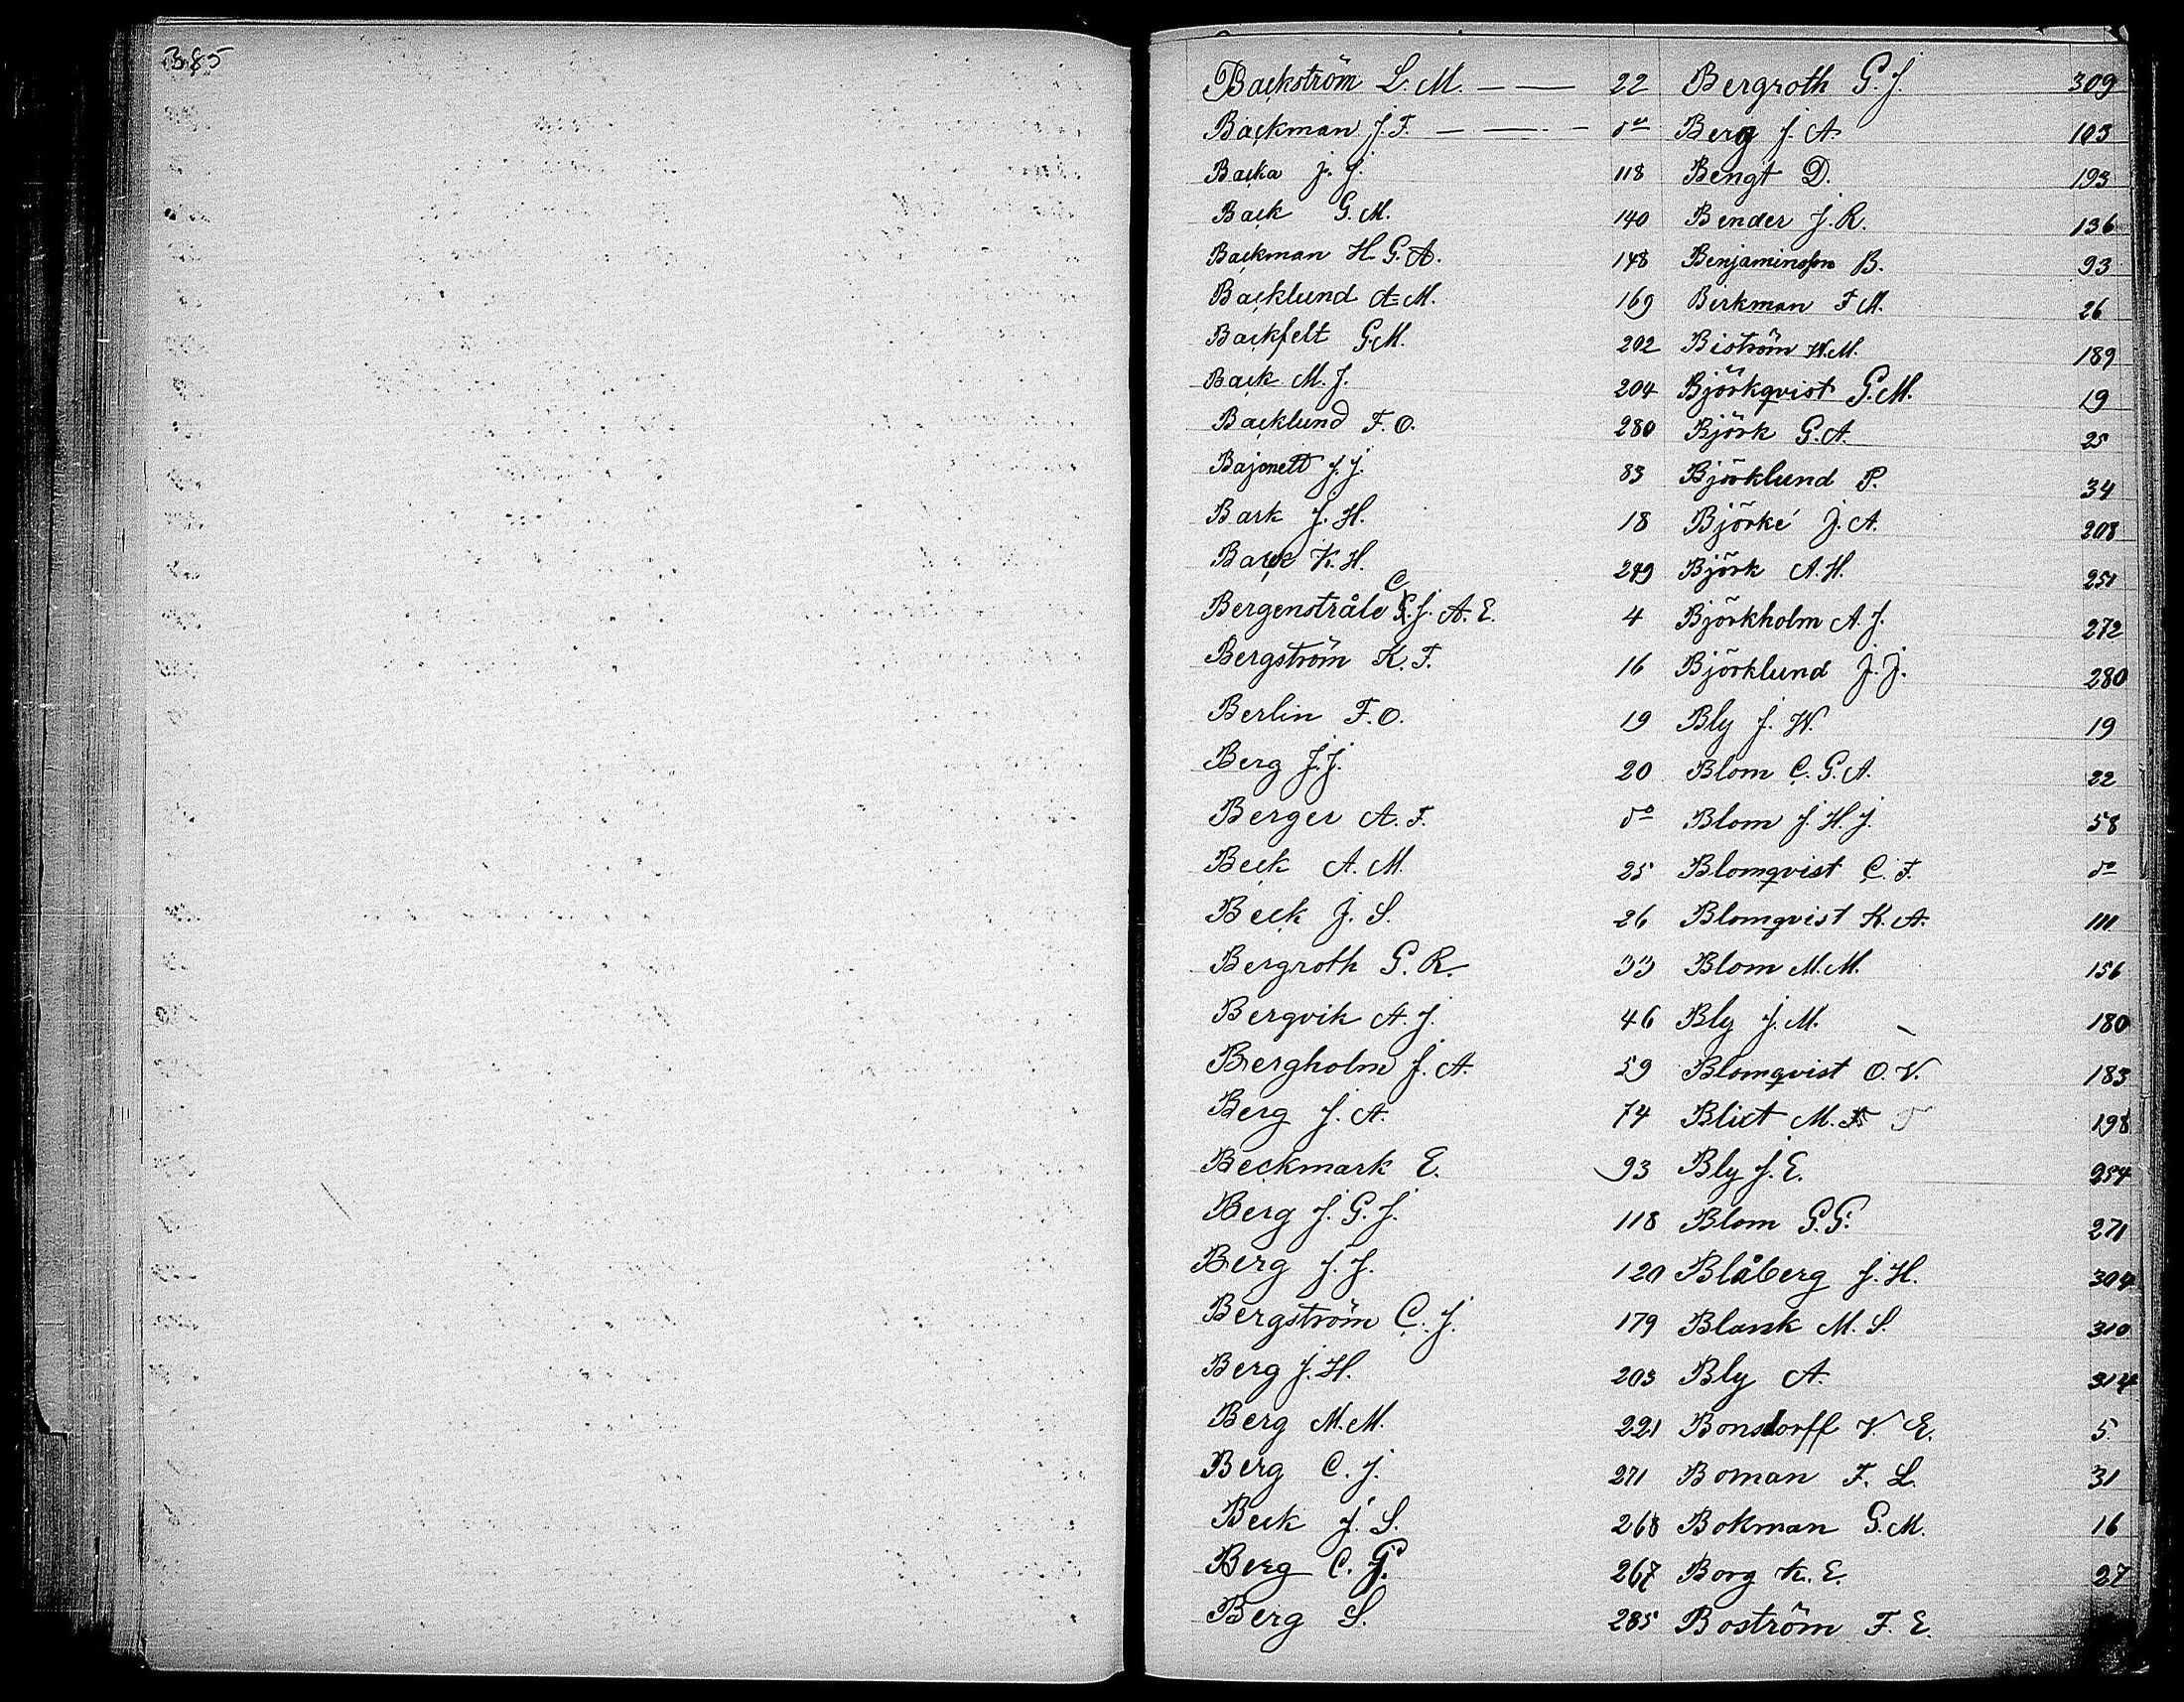 385
Backström L. M. — — 22
Backman J. F. — — — do
Backa J. J. 118
Back G. M. 140
Backman H. G. A. 148
Backlund A. M. 169
Backfelt G. M. 202
Back M. J. 204
Backlund F. O. 280
Bajonett J. J. 83
Bark J. H. 18
Back K. H. 249
Bergenstråle C. J. A. E. 4
Bergström K. F. 16
Berlin F. O. 19
Berg J. J. 20
Berger A. F. do
Beck A. M. 25
Beck J. S. 26
Bergroth G. R. 33
Bergvik A. J. 46
Bergholm J. A. 59
Berg J. A. 74
Beckmark E. 93
Berg J. G. J. 118
Berg J. J. 120
Bergström C. J. 179
Berg J. H. 203
Berg M. M. 221
Berg C. J. 271
Beck J. S. 268
Berg C. G. 267
Berg S. 285
Bergroth G. J. 309
Berg J. A. 103
Bengt D. 193
Bender J. R. 136
Benjaminsson B. 93
Birkman F M. 26
Biström W. M. 189
Björkqvist G. M. 19
Björk G. A. 25
Björklund P. 34
Björké J. A. 208
Björk A. H. 251
Björkholm A. J. 272
Björklund J. J. 280
Bly J. W. 19
Blom C. G. A. 22
Blom J. H. J. 58
Blomqvist C. F. do
Blomqvist K. A. 111
Blom M. M. 156
Bly J. M. 180
Blomqvist O. V. 183
Blixt M. 198
Bly J. E. 254
Blom G. G. 271
Blåberg J. H. 304
Blank M. S. 310
Bly A. 314
Bonsdorff V. E. 5
Boman F. L. 31
Bokman G. M. 16
Borg K. E. 27
Boström F. E.